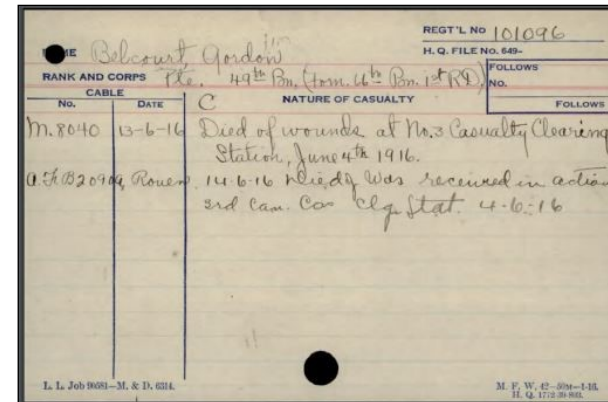 REGT'L No 101096
ME Belcourt, Gordon
H. Q. FILE No. 649-
RANK AND CORPS Pte. 49th Bn. (Form. 66th Bn. 1st RD)
FOLLOWS
No.
CABLE
No. DATE
C NATURE OF CASUALTY
FOLLOWS
M. 8040 13-6-16 Died of wounds at No. 3 Casualty Clearing
Station, June 4th 1916.
Rouen, 14-6-16 Died of Wds received in action
3rd Can. Cas Clg. Stat. 4-6-16
L. L. Job 90681—M. & D. 6314.
M. F. W. 42—50M—1-16.
H. Q. 1772-39-893.